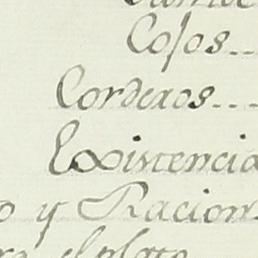 Cojos...
Corderos...
Existencia
o y Racion
el plato